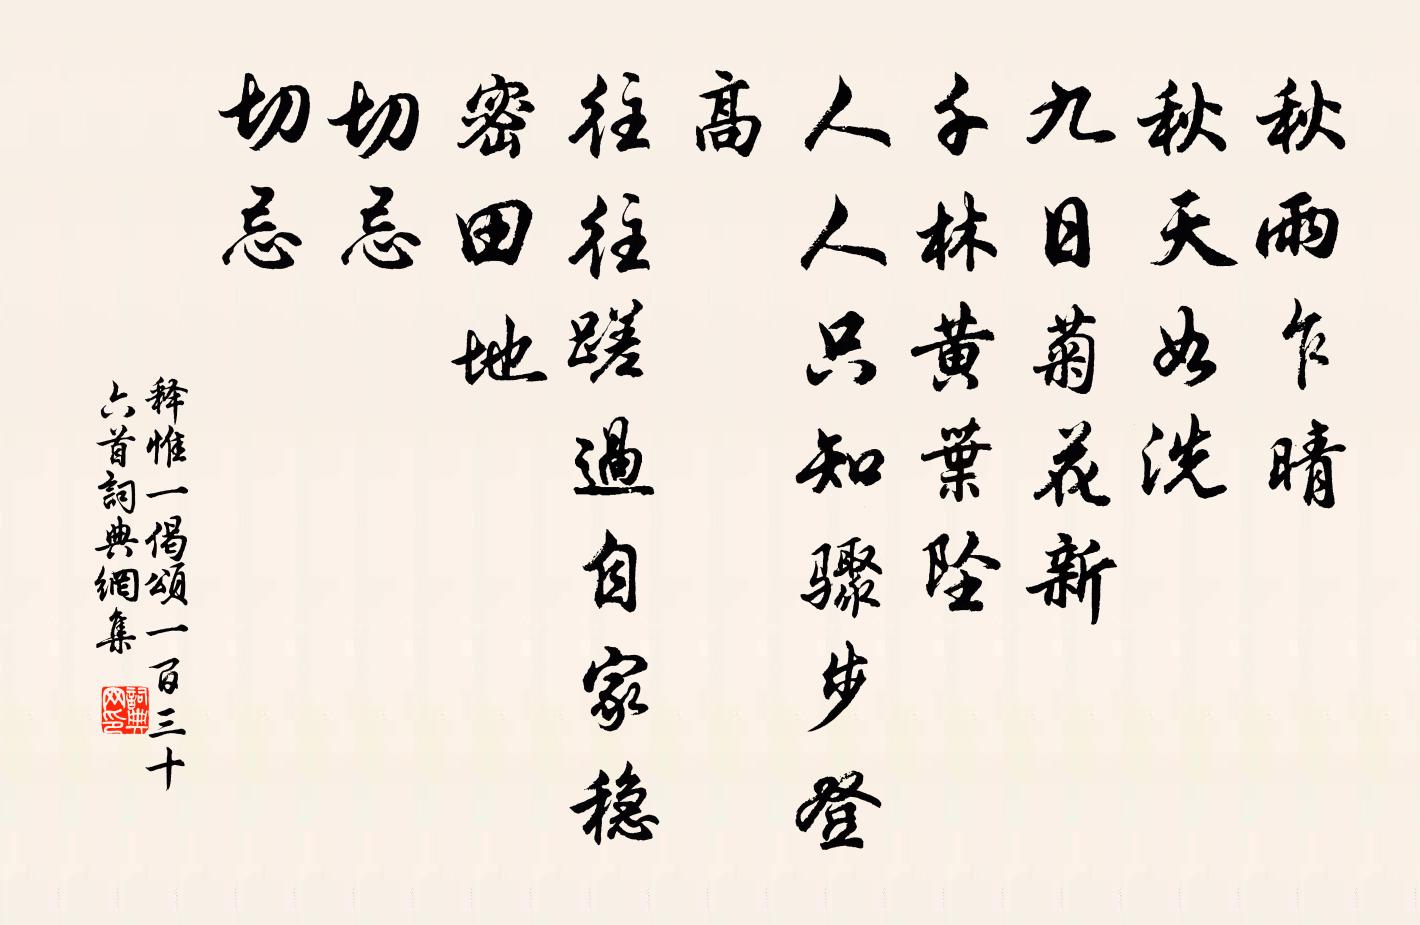 秋雨乍晴
秋天如洗
九日菊花新
千林黄葉坠
人人只知骤步登
高
往往蹉過自家稳
密田地
切忌
切忌
释惟一偈頌一百三十
六首詞典網集
詞典
网印